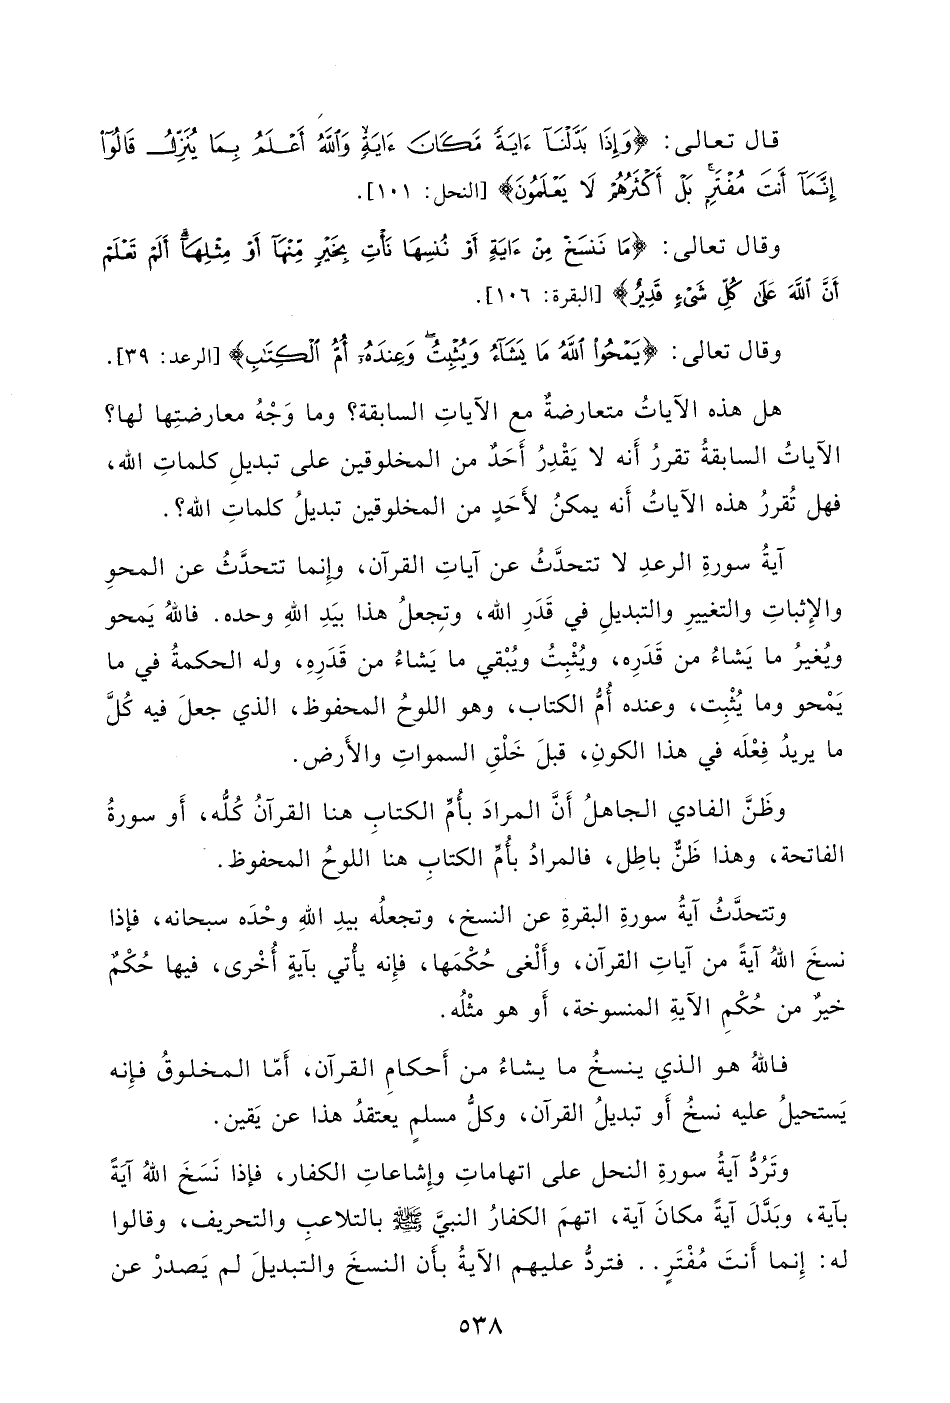 قال تعالى: ﴿وَإِذَا بَدَّلْنَآ ءَايَةً مَّكَانَ ءَايَةٍ وَٱللَّهُ أَعْلَمُ بِمَا يُنَزِّلُ قَالُوٓا۟
إِنَّمَآ أَنتَ مُفْتَرٍۭ بَلْ أَكْثَرُهُمْ لَا يَعْلَمُونَ﴾ [النحل: ١٠١].
وقال تعالى: ﴿مَا نَنسَخْ مِنْ ءَايَةٍ أَوْ نُنسِهَا نَأْتِ بِخَيْرٍ مِّنْهَآ أَوْ مِثْلِهَآ أَلَمْ تَعْلَمْ
أَنَّ ٱللَّهَ عَلَىٰ كُلِّ شَىْءٍ قَدِيرٌ﴾ [البقرة: ١٠٦].
وقال تعالى: ﴿يَمْحُوا۟ ٱللَّهُ مَا يَشَآءُ وَيُثْبِتُ وَعِندَهُۥٓ أُمُّ ٱلْكِتَٰبِ﴾ [الرعد: ٣٩].
هل هذه الآياتُ متعارضةٌ مع الآياتِ السابقة؟ وما وَجْهُ معارضتِها لها؟
الآياتُ السابقةُ تقررُ أَنه لا يَقْدِرُ أَحَدٌ من المخلوقين على تبديلِ كلماتِ الله،
فهل تُقررُ هذه الآياتُ أَنه يمكنُ لأَحَدٍ من المخلوقين تبديلُ كلماتِ الله؟.
آيةُ سورةِ الرعدِ لا تتحدَّثُ عن آياتِ القرآن، وإِنما تتحدَّثُ عن المحوِ
والإِثباتِ والتغييرِ والتبديلِ في قَدَرِ الله، وتجعلُ هذا بيَدِ اللهِ وحده. فاللهُ يَمحو
ويُغيرُ ما يَشاءُ من قَدَرِه، ويُثْبِتُ ويُبْقي ما يَشاءُ من قَدَرِهِ، وله الحكمةُ في ما
يَمْحو وما يُثْبِت، وعنده أُمُّ الكتاب، وهو اللوحُ المحفوظ، الذي جعلَ فيه كُلَّ
ما يريدُ فِعْلَه في هذا الكونِ، قبلَ خَلْقِ السمواتِ والأَرض.
وظَنَّ الفادي الجاهلُ أَنَّ المرادَ بأُمِّ الكتابِ هنا القرآنُ كُلُّه، أَو سورةُ
الفاتحة، وهذا ظَنٌّ باطِل، فالمرادُ بأُمِّ الكتابِ هنا اللوحُ المحفوظ.
وتتحدَّثُ آيةُ سورةِ البقرةِ عن النسخ، وتجعلُه بيدِ اللهِ وحْدَه سبحانه، فإذا
نسخَ اللهُ آيةً من آياتِ القرآن، وأَلْغى حُكْمَها، فإِنه يأْتي بآيةٍ أُخْرى، فيها حُكْمٌ
خيرٌ من حُكْمِ الآيةِ المنسوخة، أَو هو مثْلُه.
فاللهُ هو الذي ينسخُ ما يشاءُ من أَحكامِ القرآن، أَمّا المخلوقُ فإِنه
يَستحيلُ عليه نسخُ أَو تبديلُ القرآن، وكلُّ مسلمٍ يعتقدُ هذا عن يَقين.
وتَرُدُّ آيةُ سورةِ النحل على اتهاماتِ وإِشاعاتِ الكفار، فإذا نَسَخَ اللهُ آيَةً
بآية، وبَدَّلَ آيةً مكانَ آية، اتهمَ الكفارُ النبيَّ ﷺ بالتلاعبِ والتحريف، وقالوا
له: إِنما أَنتَ مُفْتَرٍ.. فتردُّ عليهم الآيةُ بأَن النسخَ والتبديلَ لم يَصدرْ عن
٥٣٨